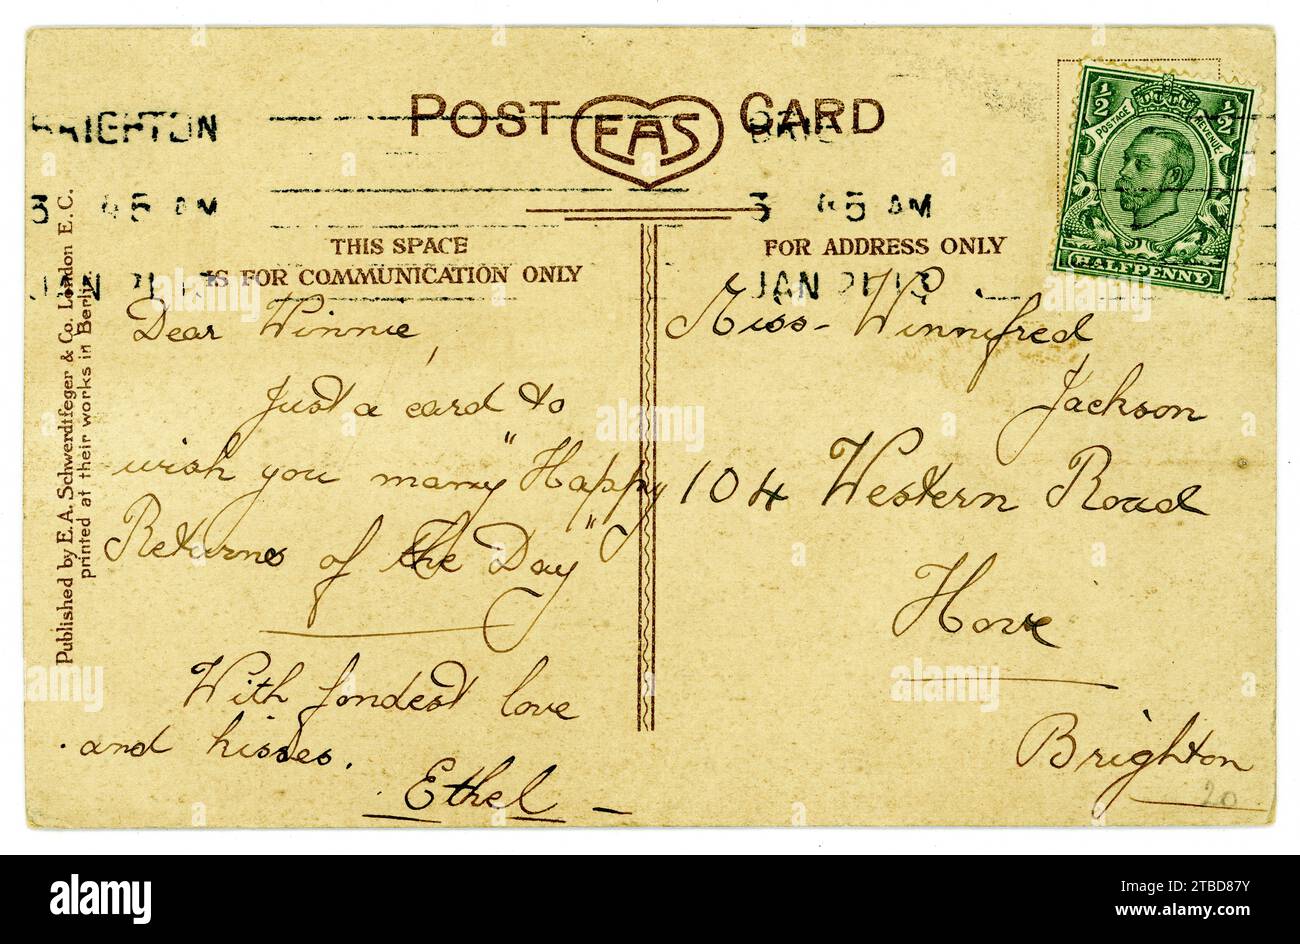 POST EAS CARD
BRIGHTON
3 45 AM
JAN 21 13
BRIG
3 45 AM
JAN 21 13
½ ½
POSTAGE REVENUE
HALFPENNY
THIS SPACE
IS FOR COMMUNICATION ONLY
FOR ADDRESS ONLY
Published by E. A. Schwerdtfeger & Co. London E. C.
printed at their works in Berlin
Dear Winnie,
Just a card to
wish you many "Happy
Returns of the Day"
With fondest love
and kisses.
Ethel
Miss Winnifred
Jackson
104 Western Road
Hove
Brighton
20
alamy
Image ID: 2TBD87Y
www.alamy.com